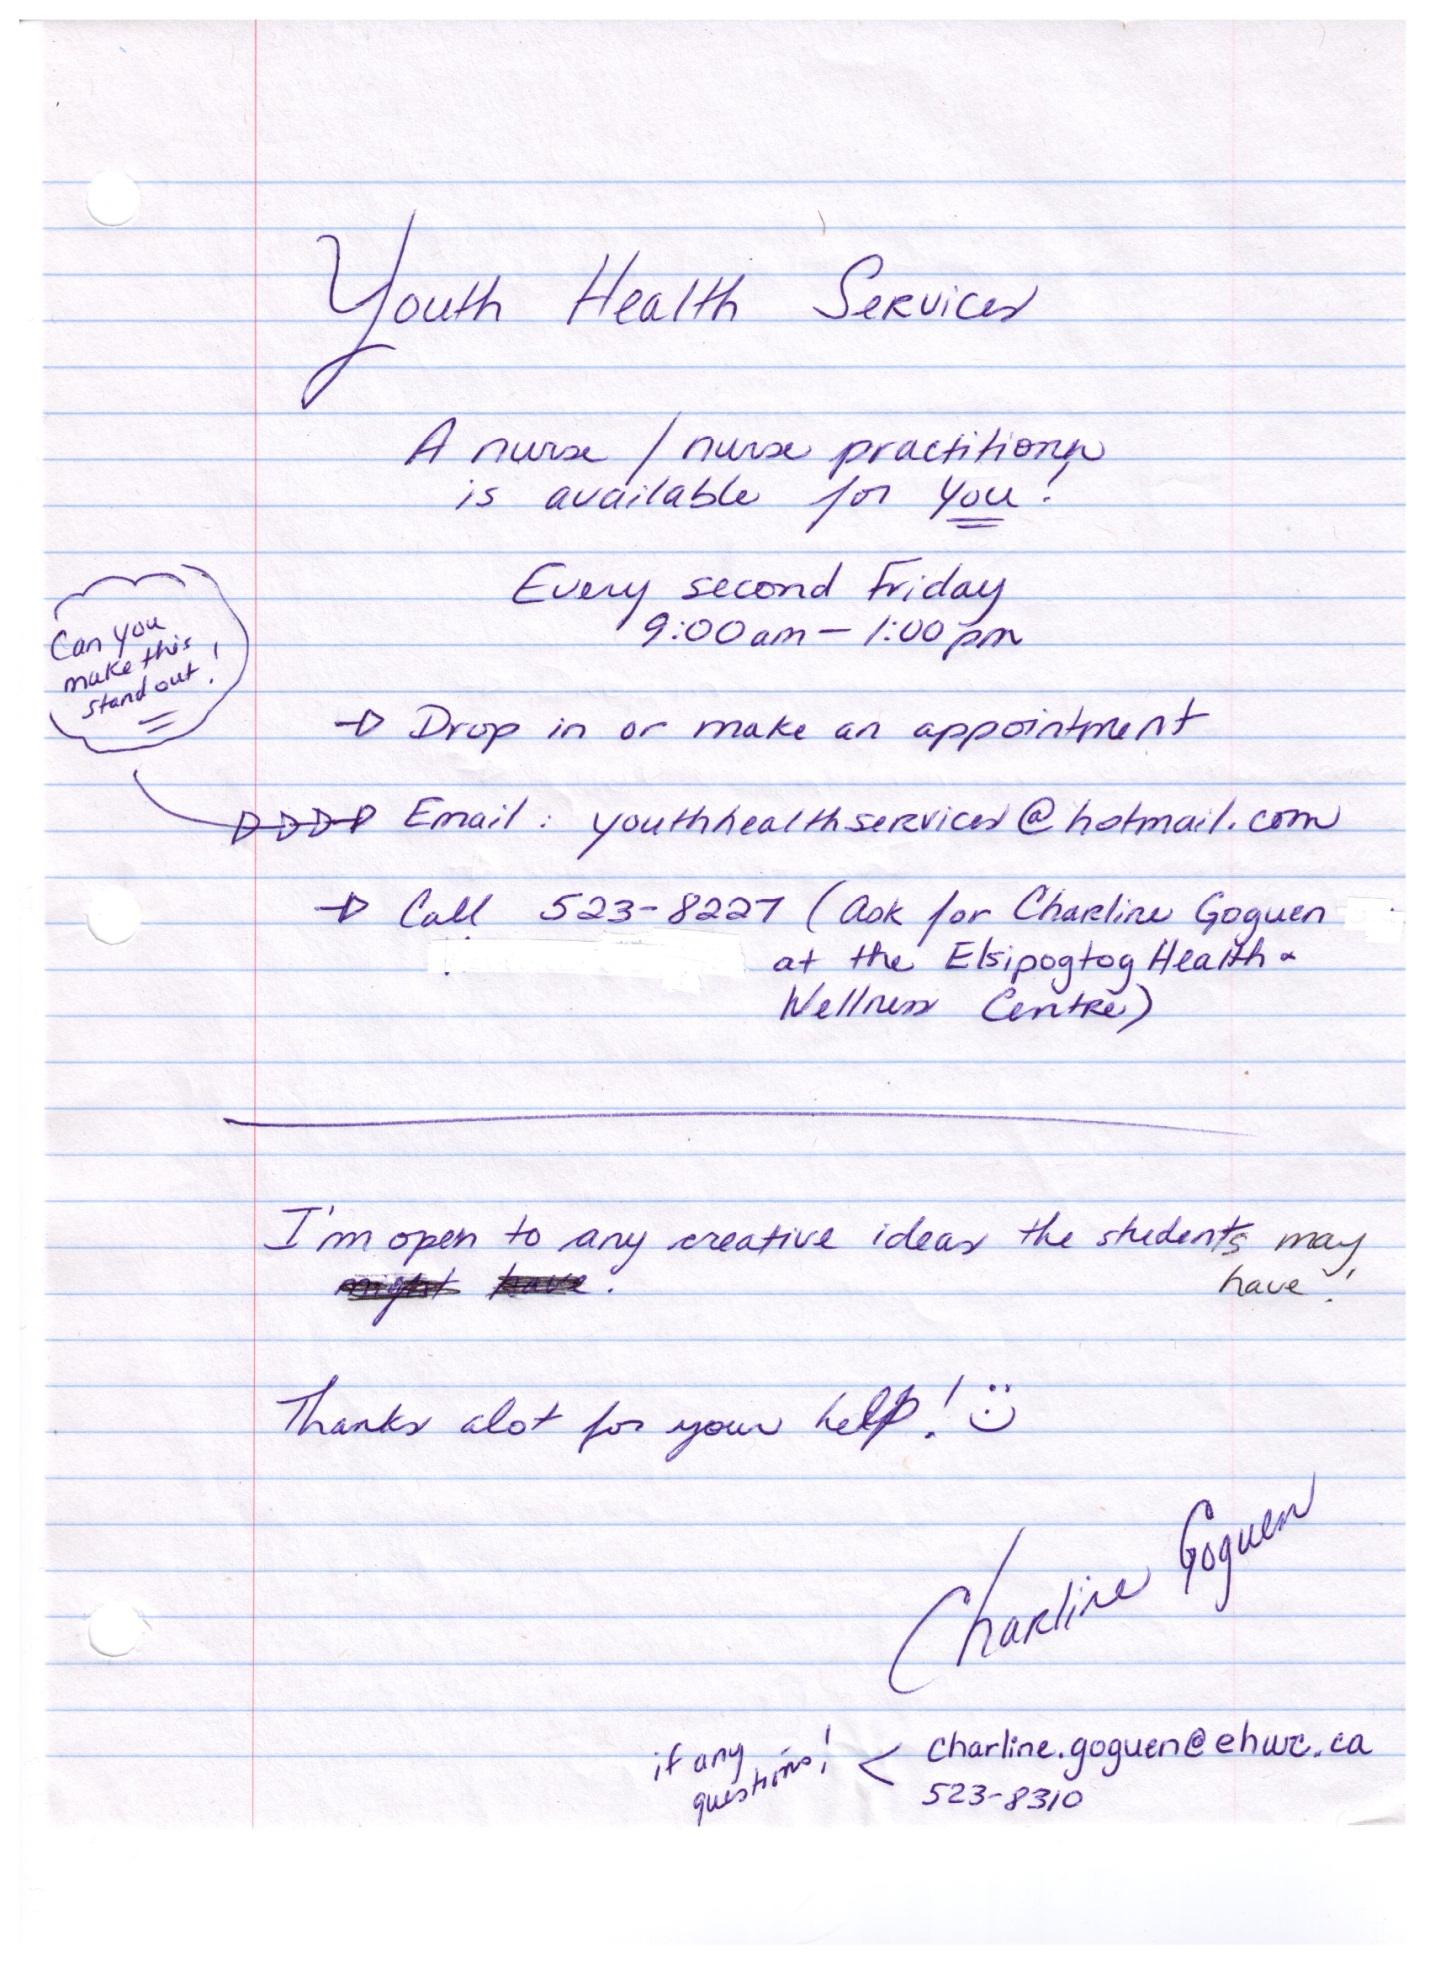 Youth Health Services
A nurse / nurse practitioner
is available for you!
Every second Friday
9:00 am – 1:00 pm
Can you
make this
stand out!
→ Drop in or make an appointment
Email: youthhealthservices@hotmail.com
→ Call 523-8227 (Ask for Charline Goguen
at the Elsipogtog Health &
Wellness Centre)
I'm open to any creative ideas the students may
might have. have!
Thanks alot for your help! :)
Charline Goguen
if any
questions! < charline.goguen@ehwc.ca
523-8310